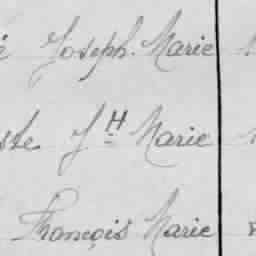 Joseph. Marie
J H Marie
François Marie